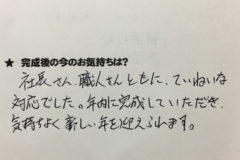 ★ 完成後の今のお気持ちは?
社長さん、職人さんともに、ていねいな
対応でした。年内に完成していただき、
気持ちよく新しい年を迎えられます。